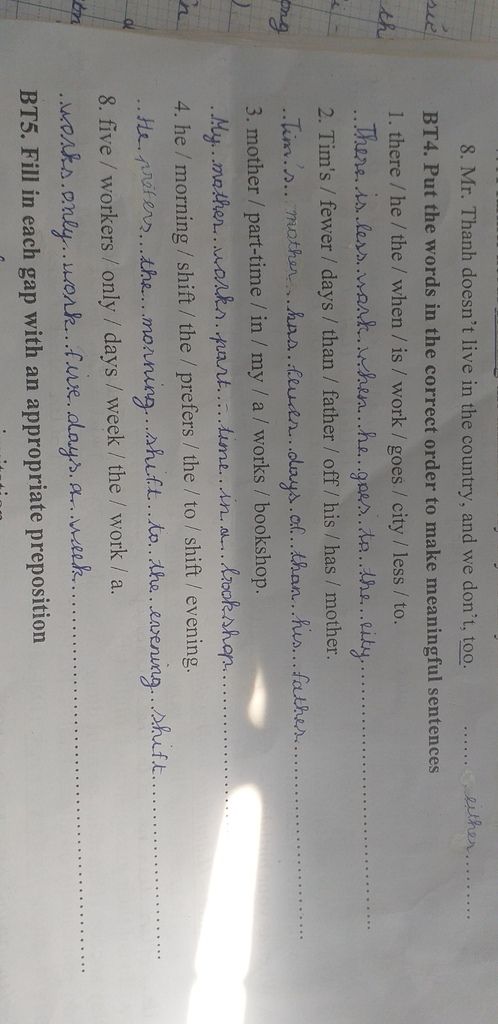 8. Mr. Thanh doesn't live in the country, and we don't, too. ....... either..........
BT4. Put the words in the correct order to make meaningful sentences
1. there / he / the / when / is / work / goes / city / less / to.
...There is less work when he goes to the city...
2. Tim's / fewer / days / than / father / off / his / has / mother.
...Tim's mother has fewer days of than his father...
3. mother / part-time / in / my / a / works / bookshop.
..My mother works part-time in a bookshop...
4. he / morning / shift / the / prefers / the / to / shift / evening.
...He prefers the morning shift to the evening shift...
8. five / workers / only / days / week / the / work / a.
..works only work five days a week...
BT5. Fill in each gap with an appropriate preposition